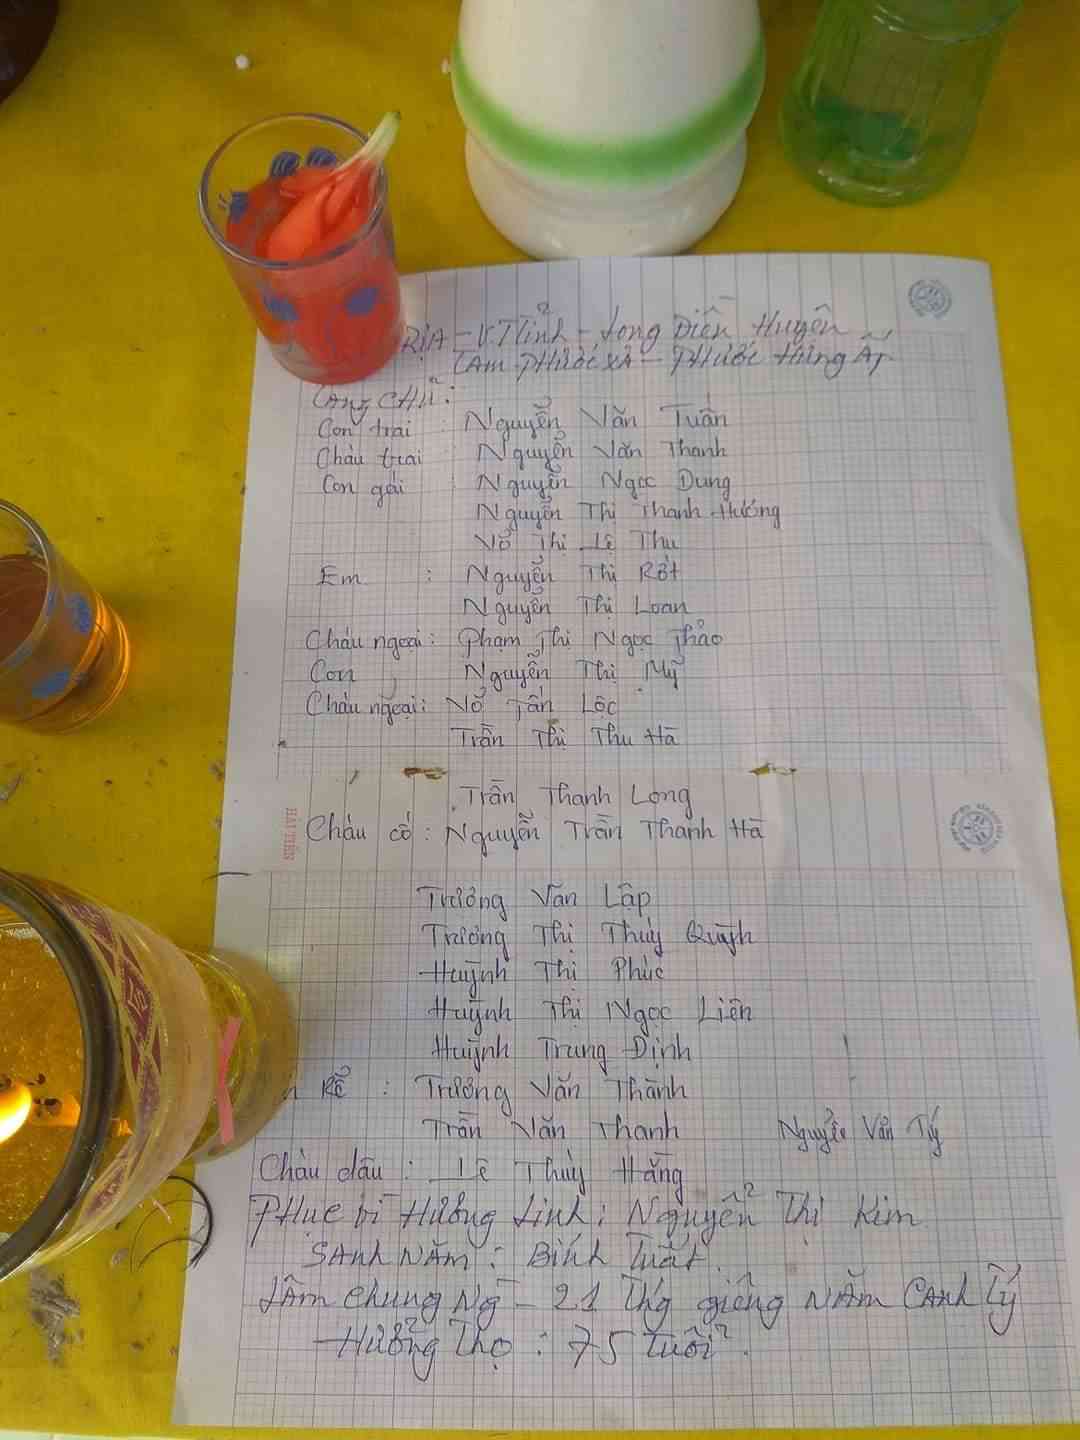 RỊA - V.Tỉnh - Long Điền Huyện
TAM PHước XÃ - PHước Hưng Ấp
Tang CHủ:
Con trai : Nguyễn Văn Tuấn
Cháu trai Nguyễn Văn Thanh
Con gái : Nguyễn Ngọc Dung
Nguyễn Thị Thanh Hương
Võ Thị Lệ Thu
Em : Nguyễn Thị Rớt
Nguyễn Thị Loan
Cháu ngoại: Phạm Thị Ngọc Thảo
Con Nguyễn Thị Mỹ
Cháu ngoại: Võ Tấn Lộc
Trần Thị Thu Hà
Trần Thanh Long
Cháu cố : Nguyễn Trần Thanh Hà
HẢI TIẾN
Trương Văn Lập
Trương Thị Thúy Quỳnh
Huỳnh Thị Phúc
Huỳnh Thị Ngọc Liên
Huỳnh Trung Định
Rể : Trương Văn Thành
Trần Văn Thanh Nguyễn Văn Tý
Cháu dâu : Lê Thúy Hằng
PHục vì Hương Linh: Nguyễn Thị Kim
SANH NĂM : Bính Tuất.
Lâm chung Ng - 21 Thg giêng NĂM CANH Tý
Hưởng Thọ : 75 Tuổi.